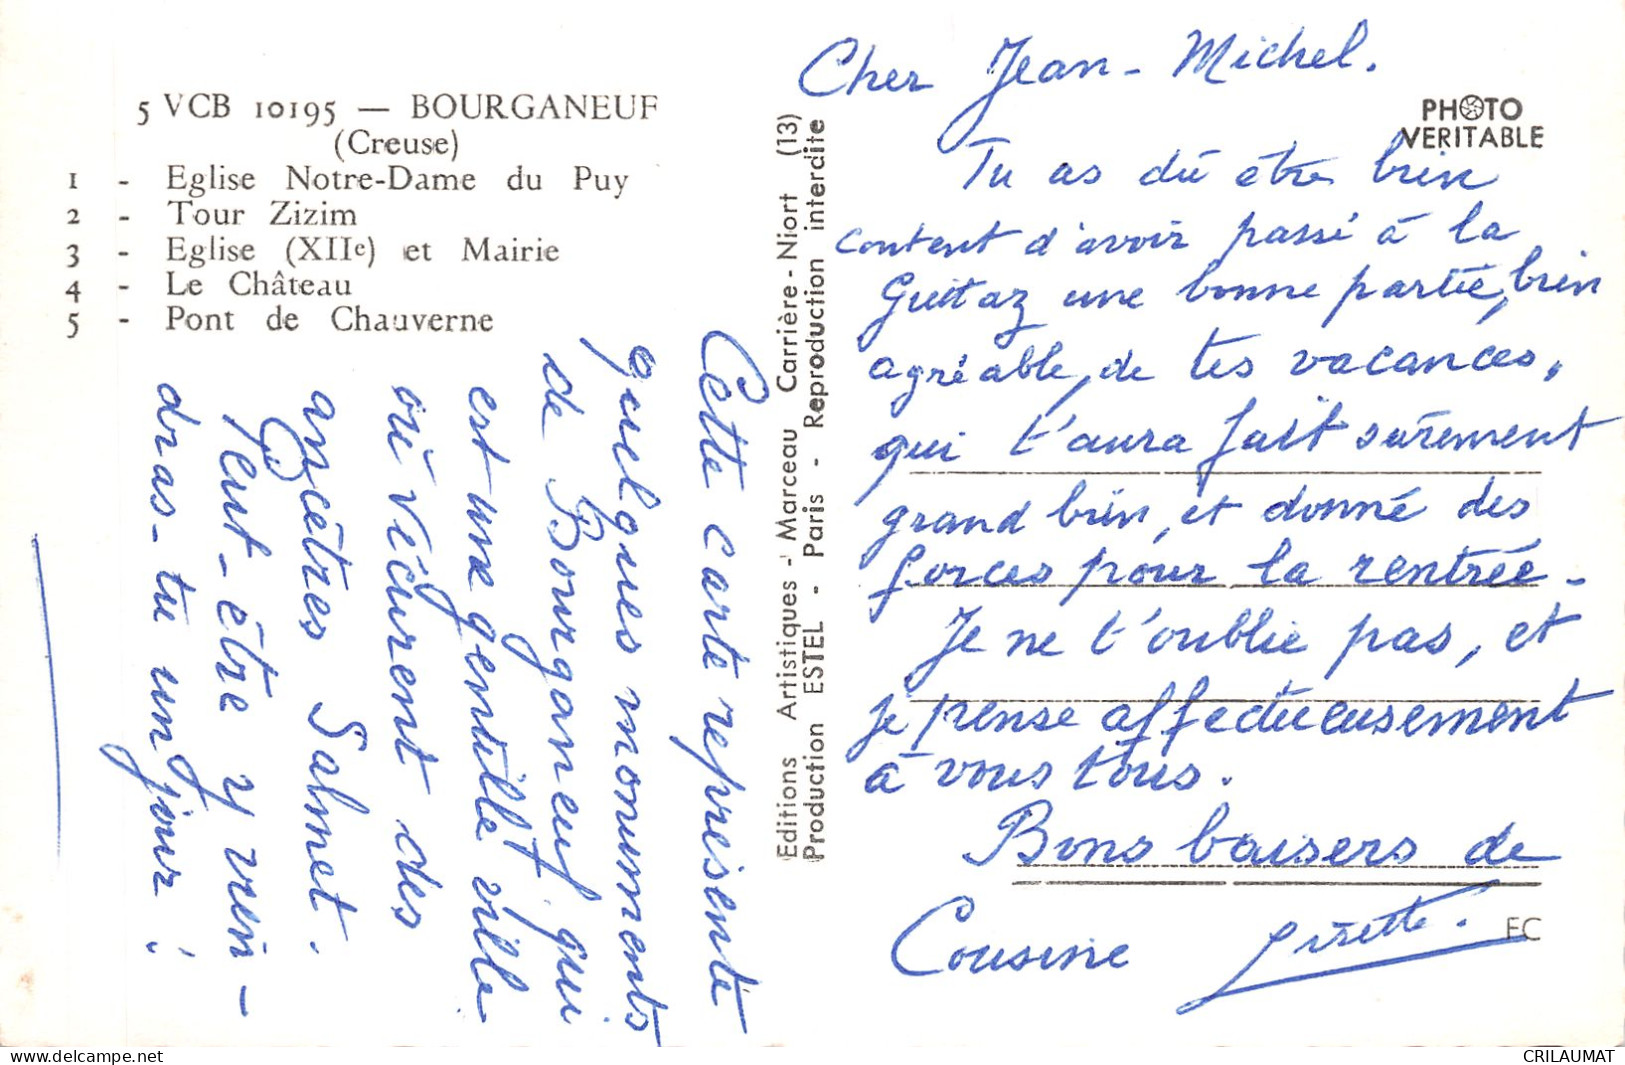 5 VCB 10195 — BOURGANEUF
(Creuse)
1 - Eglise Notre-Dame du Puy
2 - Tour Zizim
3 - Eglise (XIIe) et Mairie
4 - Le Château
5 - Pont de Chauverne
Cette carte représente
quelques monuments
de Bourganeuf qui
est une gentille ville
où vécurent des
ancêtres Salmet.
Peut-être y vien-
dras-tu un jour !
Editions Artistiques - Marceau Carrière - Niort (13)
Production ESTEL - Paris - Reproduction interdite
PHOTO
VERITABLE
Cher Jean-Michel.
Tu as dû être bien
content d'avoir passé à la
Guittaz une bonne partie, bien
agréable, de tes vacances,
qui t'aura fait sûrement
grand bien, et donné des
forces pour la rentrée -
Je ne t'oublie pas, et
je pense affectueusement
à vous tous.
Bons baisers de
Cousine
EC
delcampe.net
CRILAUMAT